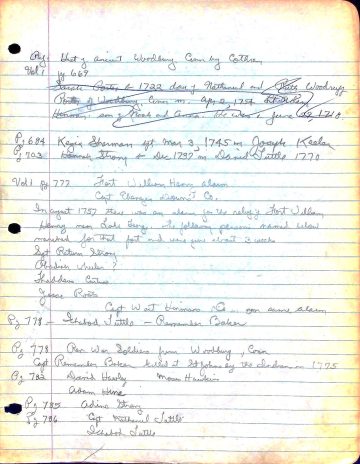 Ref: Hist of ancient Woodbury Conn by Cothren
Vol 1 pg 669
b 1722 dau of Nathaniel and Woodruff
of Woodbury, Conn m. Apr 2, 1754
son of and Anna. He was b June
Pg 684 Sherman bpt Mar 3, 1745 m Joseph Keeler
Pg 703 Hannah Strong b Dec 1737 m Daniel Tuttle 1770
Vol 1 pg 777 Fort William Henry alarm
Capt Co.
In august 1757 there was an alarm for the relief of Fort William
Henry near Lake George. The following persons named below
marched for that fort and were gone about 2 weeks
Sgt Return Strong
Wheeler ?
Thaddeus Curtiss
Jesse Roots
Capt Wait Hinmans Co ... on same alarm
Pg 778 - Ichabod Tuttle - Remember Baker
Pg 778 Rev War Soldiers from Woodbury, Conn
Capt Remember Baker killed at St Johns by the Indians in 1775
Pg 782 David Hawley Moses Hawkins
Adam
Pg 785 Adino Strong
Pg 786 Cpt Nathaniel Tuttle
Ichabod Tuttle